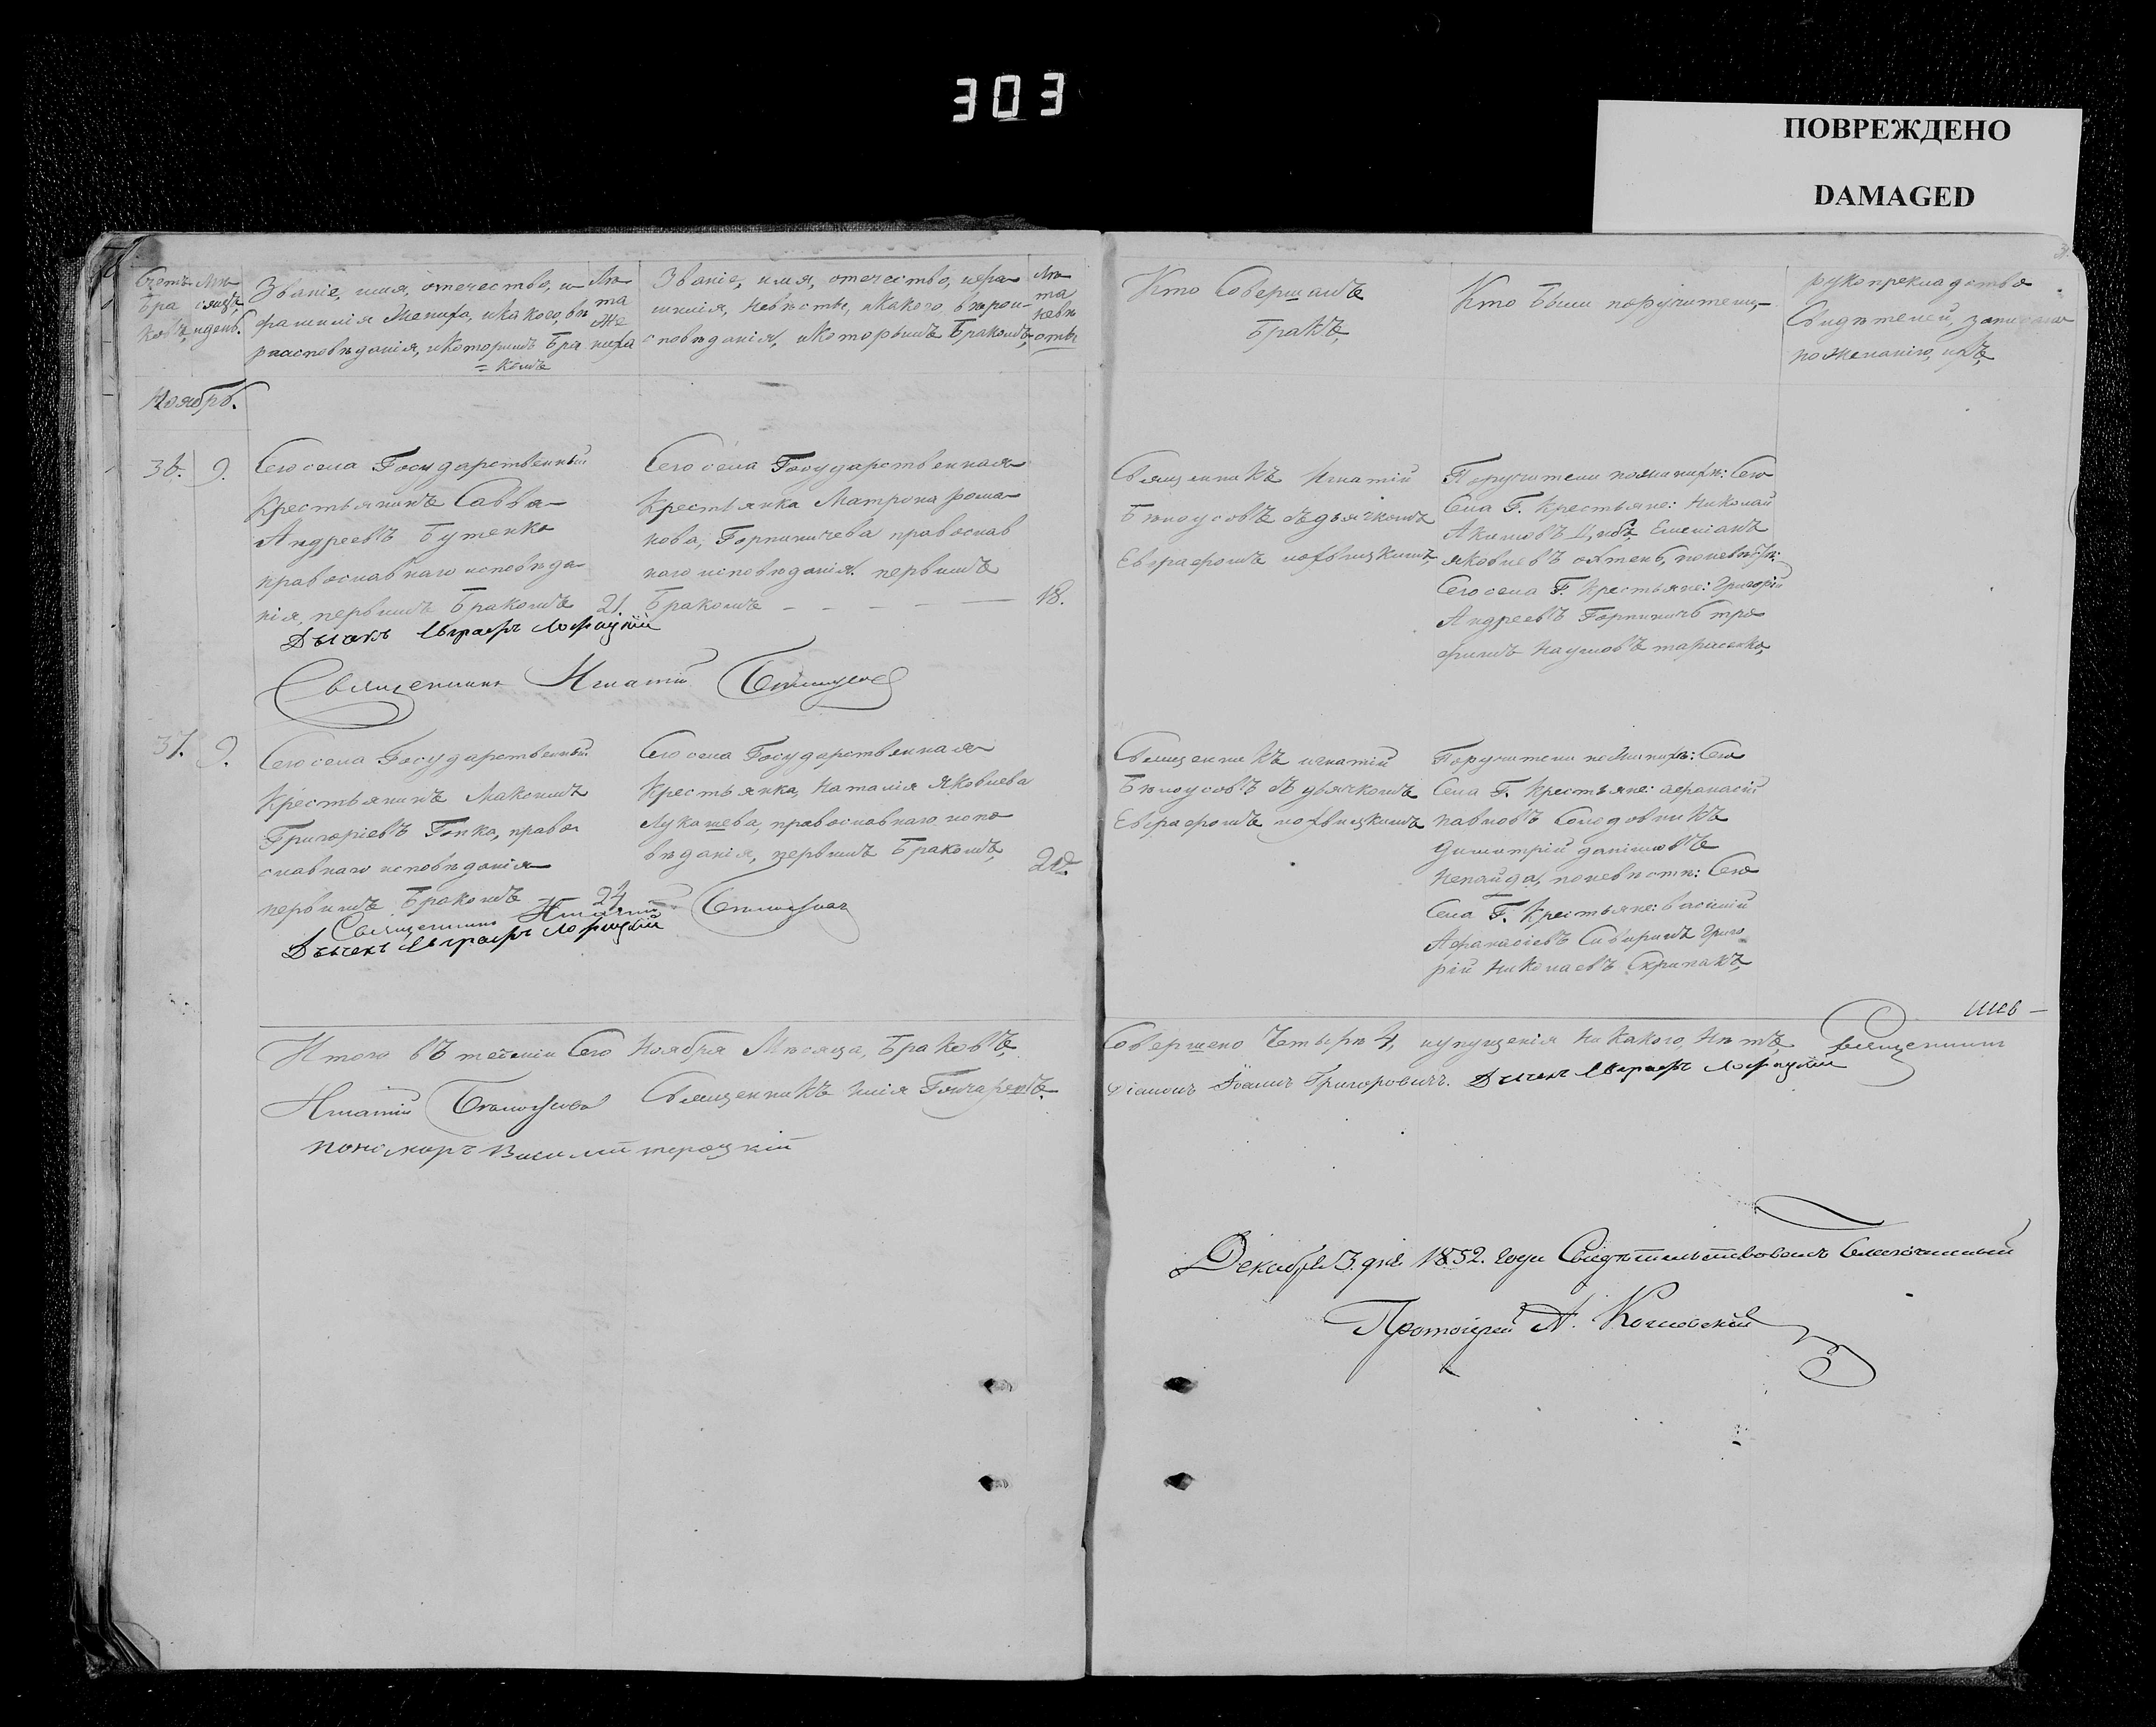 303
ПОВРЕЖДЕНО
DAMAGED
Счетъ Мѣ
бра сяцъ,
ковъ, и день.
Званіе, имя, отечество, и
фамилія Жениха, и какого, вѣ
роисповѣданія, и которымъ бра
= комъ
Лѣ
та
Же
ниха
Званіе, имя, отечество, и фа
милія, невѣсты, и какого, вѣрои-
сповѣданія, и которымъ бракомъ,
Лѣ
та
невѣ
сты
Кто Совершалъ
бракъ,
Кто были поручители,
рукоприкладство
Свидѣтелей, записано
по желанію, ихъ,
Ноябрь.
36. 9.
Сего села Государственный
Крестьянинъ Савва
Андреевъ Бутенко
православнаго исповѣда
нія, первымъ бракомъ 21.
Сего села Государственная
Крестьянка Матрона рома
нова, Горпиничева православ
наго исповѣданія первымъ
Бракомъ - - - - 18.
Священникъ Игнатій
Бѣлоусовъ съ дьячкомъ
Евграфомъ
Поручители по женихѣ: Сего
Села Г. Крестьяне: Николай
Акимовъ Емеліанъ
яковлевъ по невѣстѣ:
Сего села Г. Крестьяне: Григорій
Андреевъ Горпиничъ тро
фимъ Наумовъ тарасенко,
Дьячекъ Евграфъ
Священникъ Игнатій Бѣлоусовъ
37. 9.
Сего села Государственный
Крестьянинъ Максимъ
Григоріевъ Гопка, право
славнаго исповѣданія
первымъ Бракомъ 24
Сего села Государственная
Крестьянка, Наталія Яковлева
Лукашева, православнаго испо
вѣданія, первымъ Бракомъ,
Священникъ игнатій
Бѣлоусовъ съ дьячкомъ
Евграфомъ
Поручители по женихѣ: Сего
Села Г. Крестьяне: афанасій
павловъ Солодовникъ
димитрій даниловъ
Непайда, по невѣстѣ: Сего
Села Г. Крестьяне: василій
Афанасіевъ Григо
рій Николаевъ Скрипакъ,
Священникъ Игнатій Бѣлоусовъ
Дьячекъ Евграфъ
Итого въ теченіи Сего Ноября Мѣсяца, Браковъ,
Совершено Четыри 4, и упущенія Никакого, Нѣтъ, Священникъ
Игнатій Бѣлоусовъ Священникъ Илія
Діаконъ Іоаннъ Григоровичъ. Дьячекъ Евграфъ
пономарь Василій терецкій
Декабря 3. дня 1852. года Свидѣтельствовалъ Благочинный
Протоіерей А.